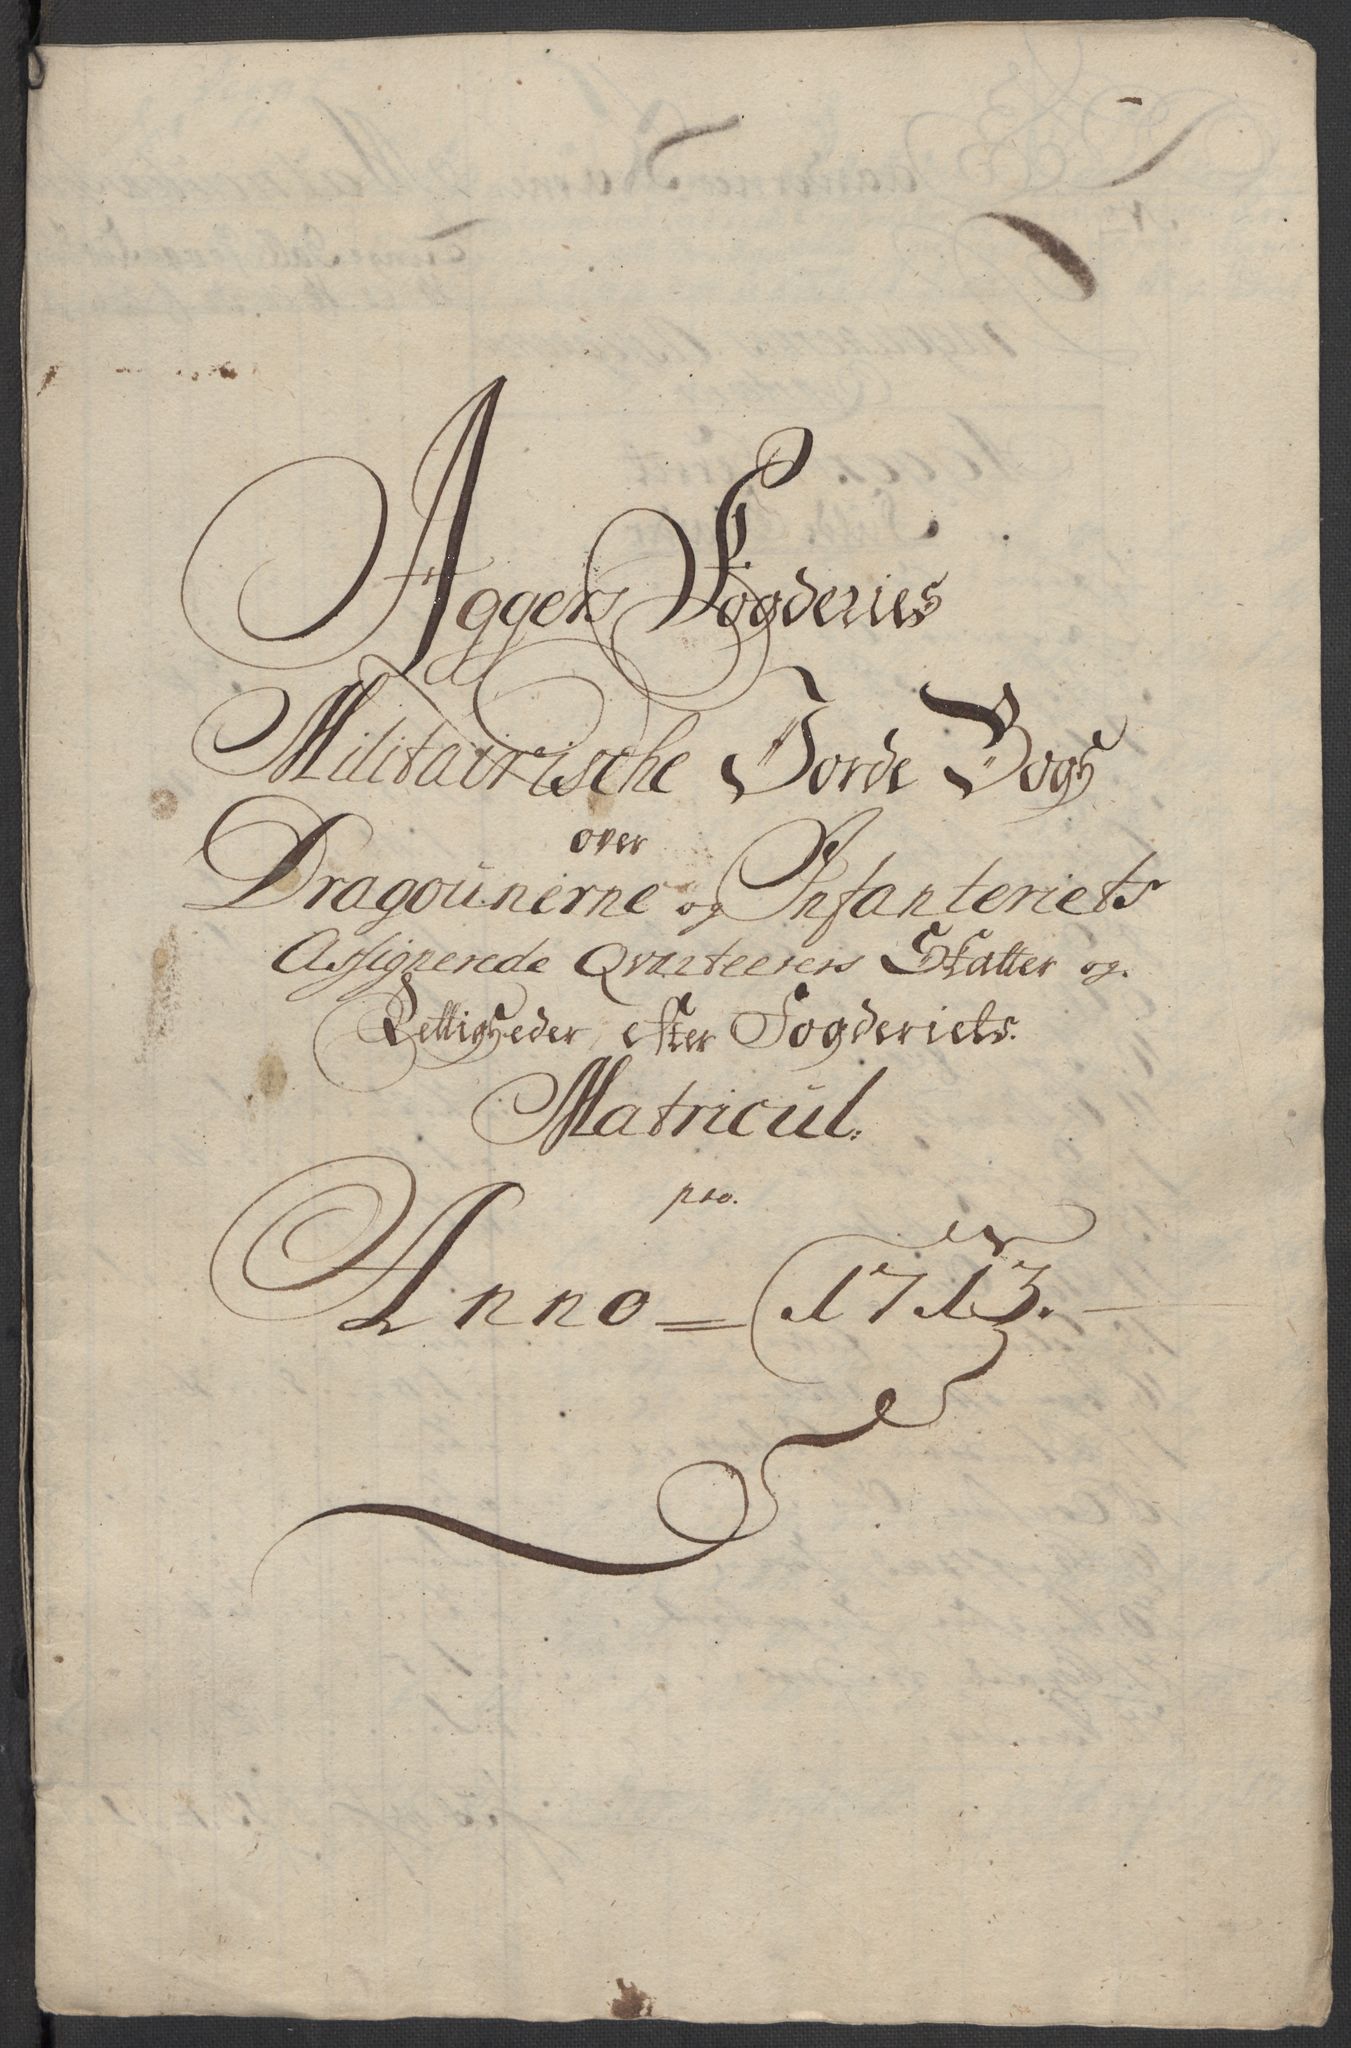 Aggers Fogderies
Militairische Jorde Bog
over
Dragounerne og Infanteriets
Assignerede Qvarteerers Skatter og
Rettigheder efter Fogderiets
Matricul.
pro.
Anno = 1713.